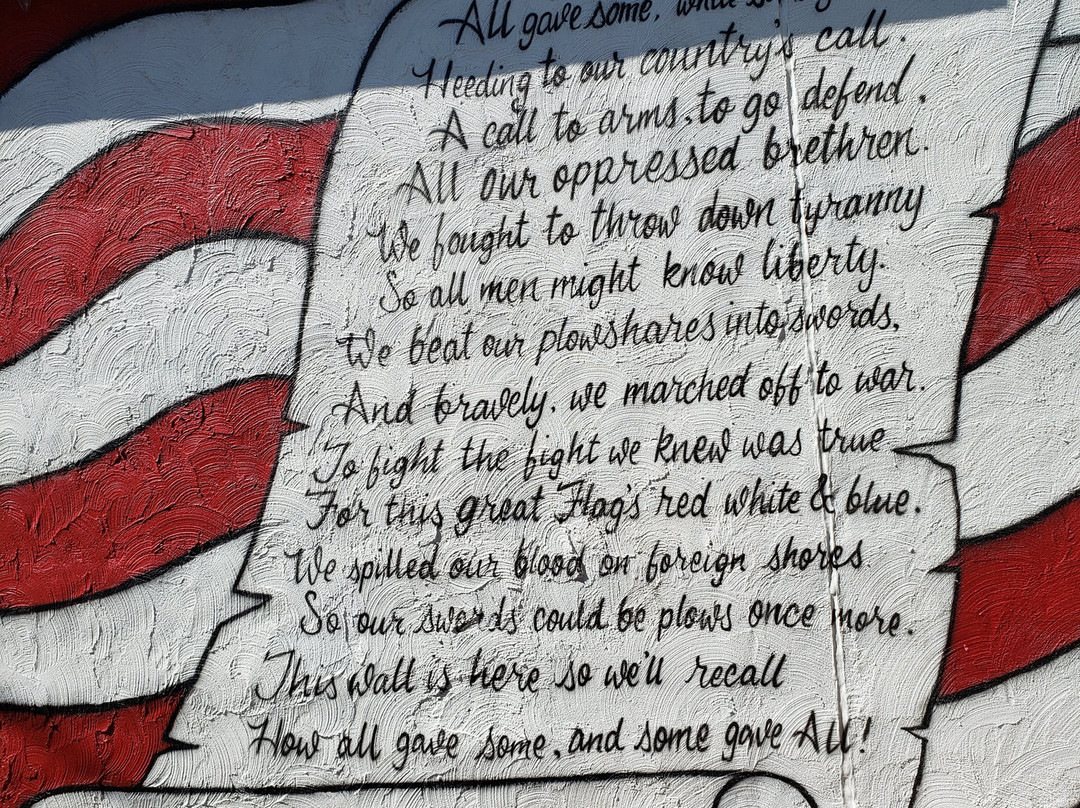 All gave some, while some
Heeding to our country's call.
A call to arms, to go defend.
All our oppressed brethren.
We fought to throw down tyranny
So all men might know liberty.
We beat our plowshares into swords,
And bravely, we marched off to war.
To fight the fight we knew was true
For this great Flag's red white & blue.
We spilled our blood on foreign shores
So our swords could be plows once more.
This wall is here so we'll recall
How all gave some, and some gave All!